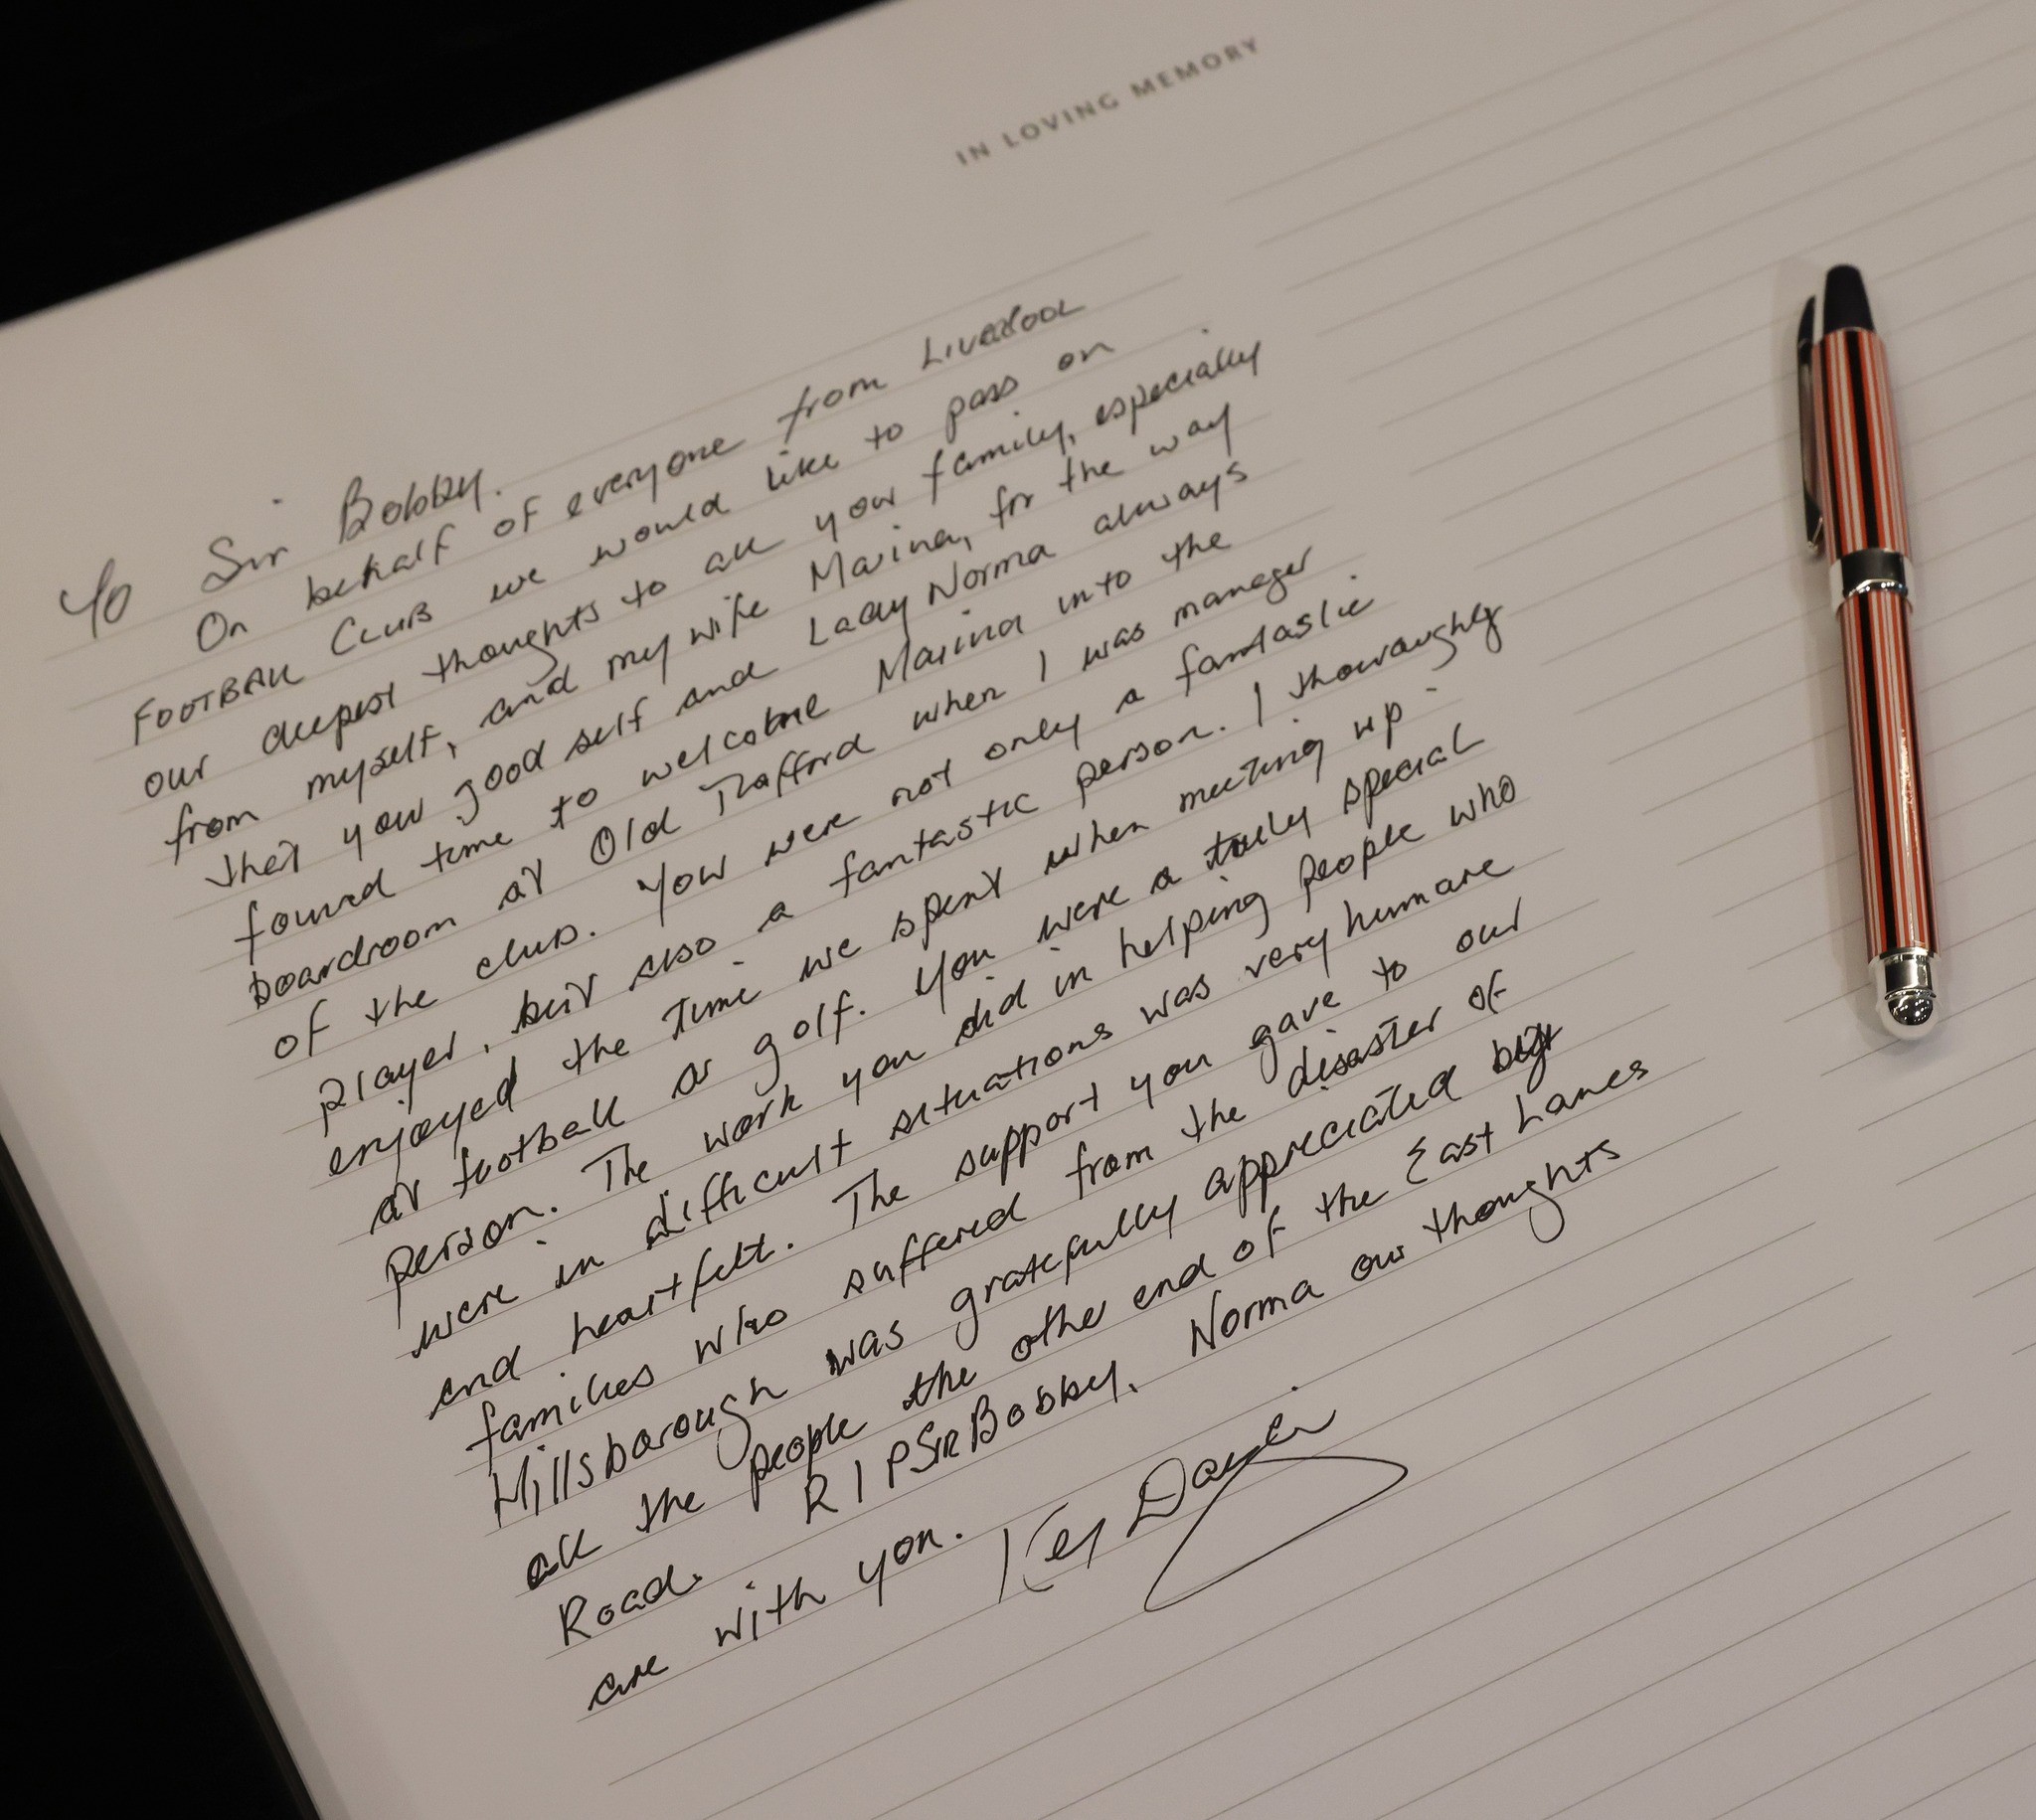 IN LOVING MEMORY
To Sir Bobby.
On behalf of everyone from Liverpool
FOOTBALL CLUB we would like to pass on
our deepest thoughts to all your family, especially
from myself, and my wife Marina, for the way
that your good self and Lady Norma always
found time to welcome Marina into the
boardroom at Old Trafford when I was manager
of the club. You were not only a fantastic
player, but also a fantastic person. I thoroughly
enjoyed the time we spent when meeting up
at football or golf. You were a truly special
person. The work you did in helping people who
were in difficult situations was very humane
and heartfelt. The support you gave to our
families who suffered from the disaster of
Hillsborough was gratefully appreciated by
all the people the other end of the East Lancs
Road. RIP Sir Bobby. Norma our thoughts
are with you. Kenny Dalglish